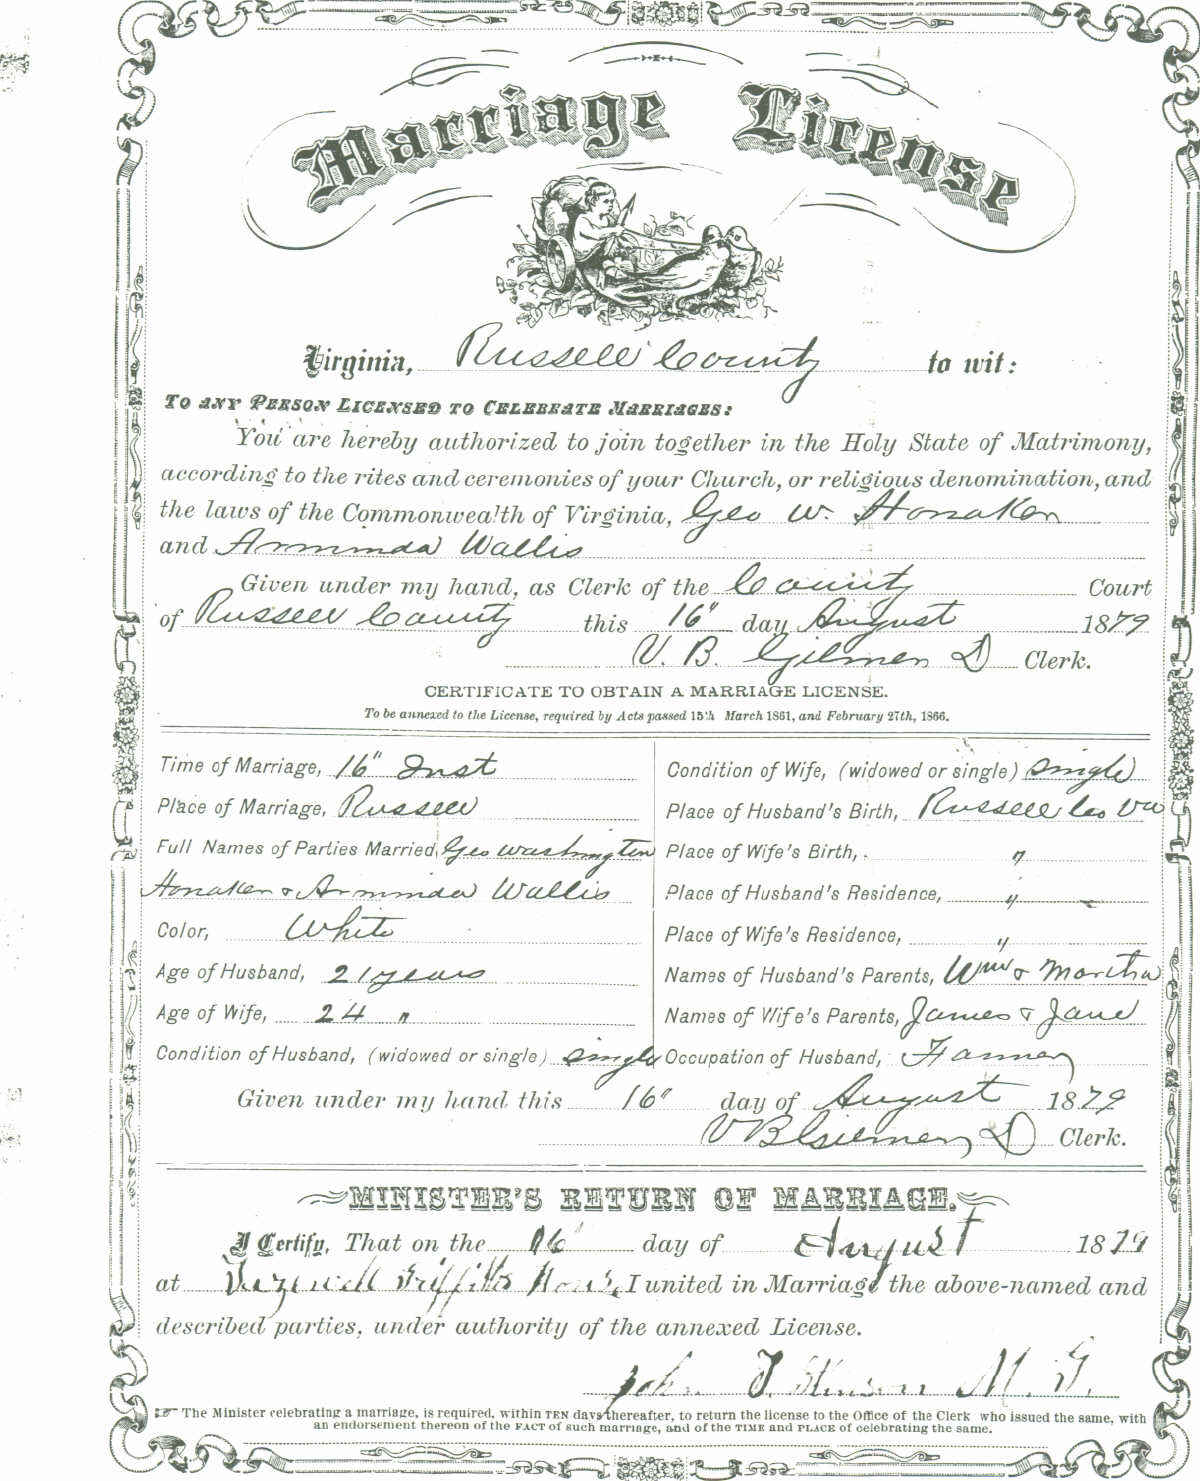 Marriage License
Virginia, Russell County to wit:
To any Person Licensed to Celebrate Marriages:
You are hereby authorized to join together in the Holy State of Matrimony,
according to the rites and ceremonies of your Church, or religious denomination, and
the laws of the Commonwealth of Virginia, Geo W. Honaker
and Arminda Wallis
Given under my hand, as Clerk of the County Court
of Russell County this 16" day August 1879
V. B. Gilmer D Clerk.
CERTIFICATE TO OBTAIN A MARRIAGE LICENSE.
To be annexed to the License, required by Acts passed 15th March 1861, and February 27th, 1866.
Time of Marriage, 16" Inst
Place of Marriage, Russell
Full Names of Parties Married, Geo Washington
Honaker & Arminda Wallis
Color, White
Age of Husband, 21 years
Age of Wife, 24 "
Condition of Husband, (widowed or single) single
Condition of Wife, (widowed or single) single
Place of Husband's Birth, Russell Co Va
Place of Wife's Birth, "
Place of Husband's Residence, "
Place of Wife's Residence, "
Names of Husband's Parents, Wm & Martha
Names of Wife's Parents, James & Jane
Occupation of Husband, Farmer
Given under my hand this 16" day of August 1879
V B Gilmer D Clerk.
MINISTER'S RETURN OF MARRIAGE.
I Certify, That on the 16 day of August 1879
at Tazewell Griffiths I united in Marriage the above-named and
described parties, under authority of the annexed License.
John T. M. G.
The Minister celebrating a marriage, is required, within TEN days thereafter, to return the license to the Office of the Clerk who issued the same, with
an endorsement thereon of the FACT of such marriage, and of the TIME and PLACE of celebrating the same.